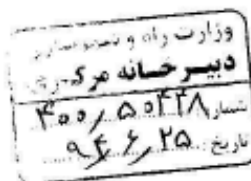 وزارت راه و شهرسازی
دبیرخانه مرکزی
شماره ۴۰۰/۵۵۴۴۸
تاریخ ۹۴/۶/۲۵